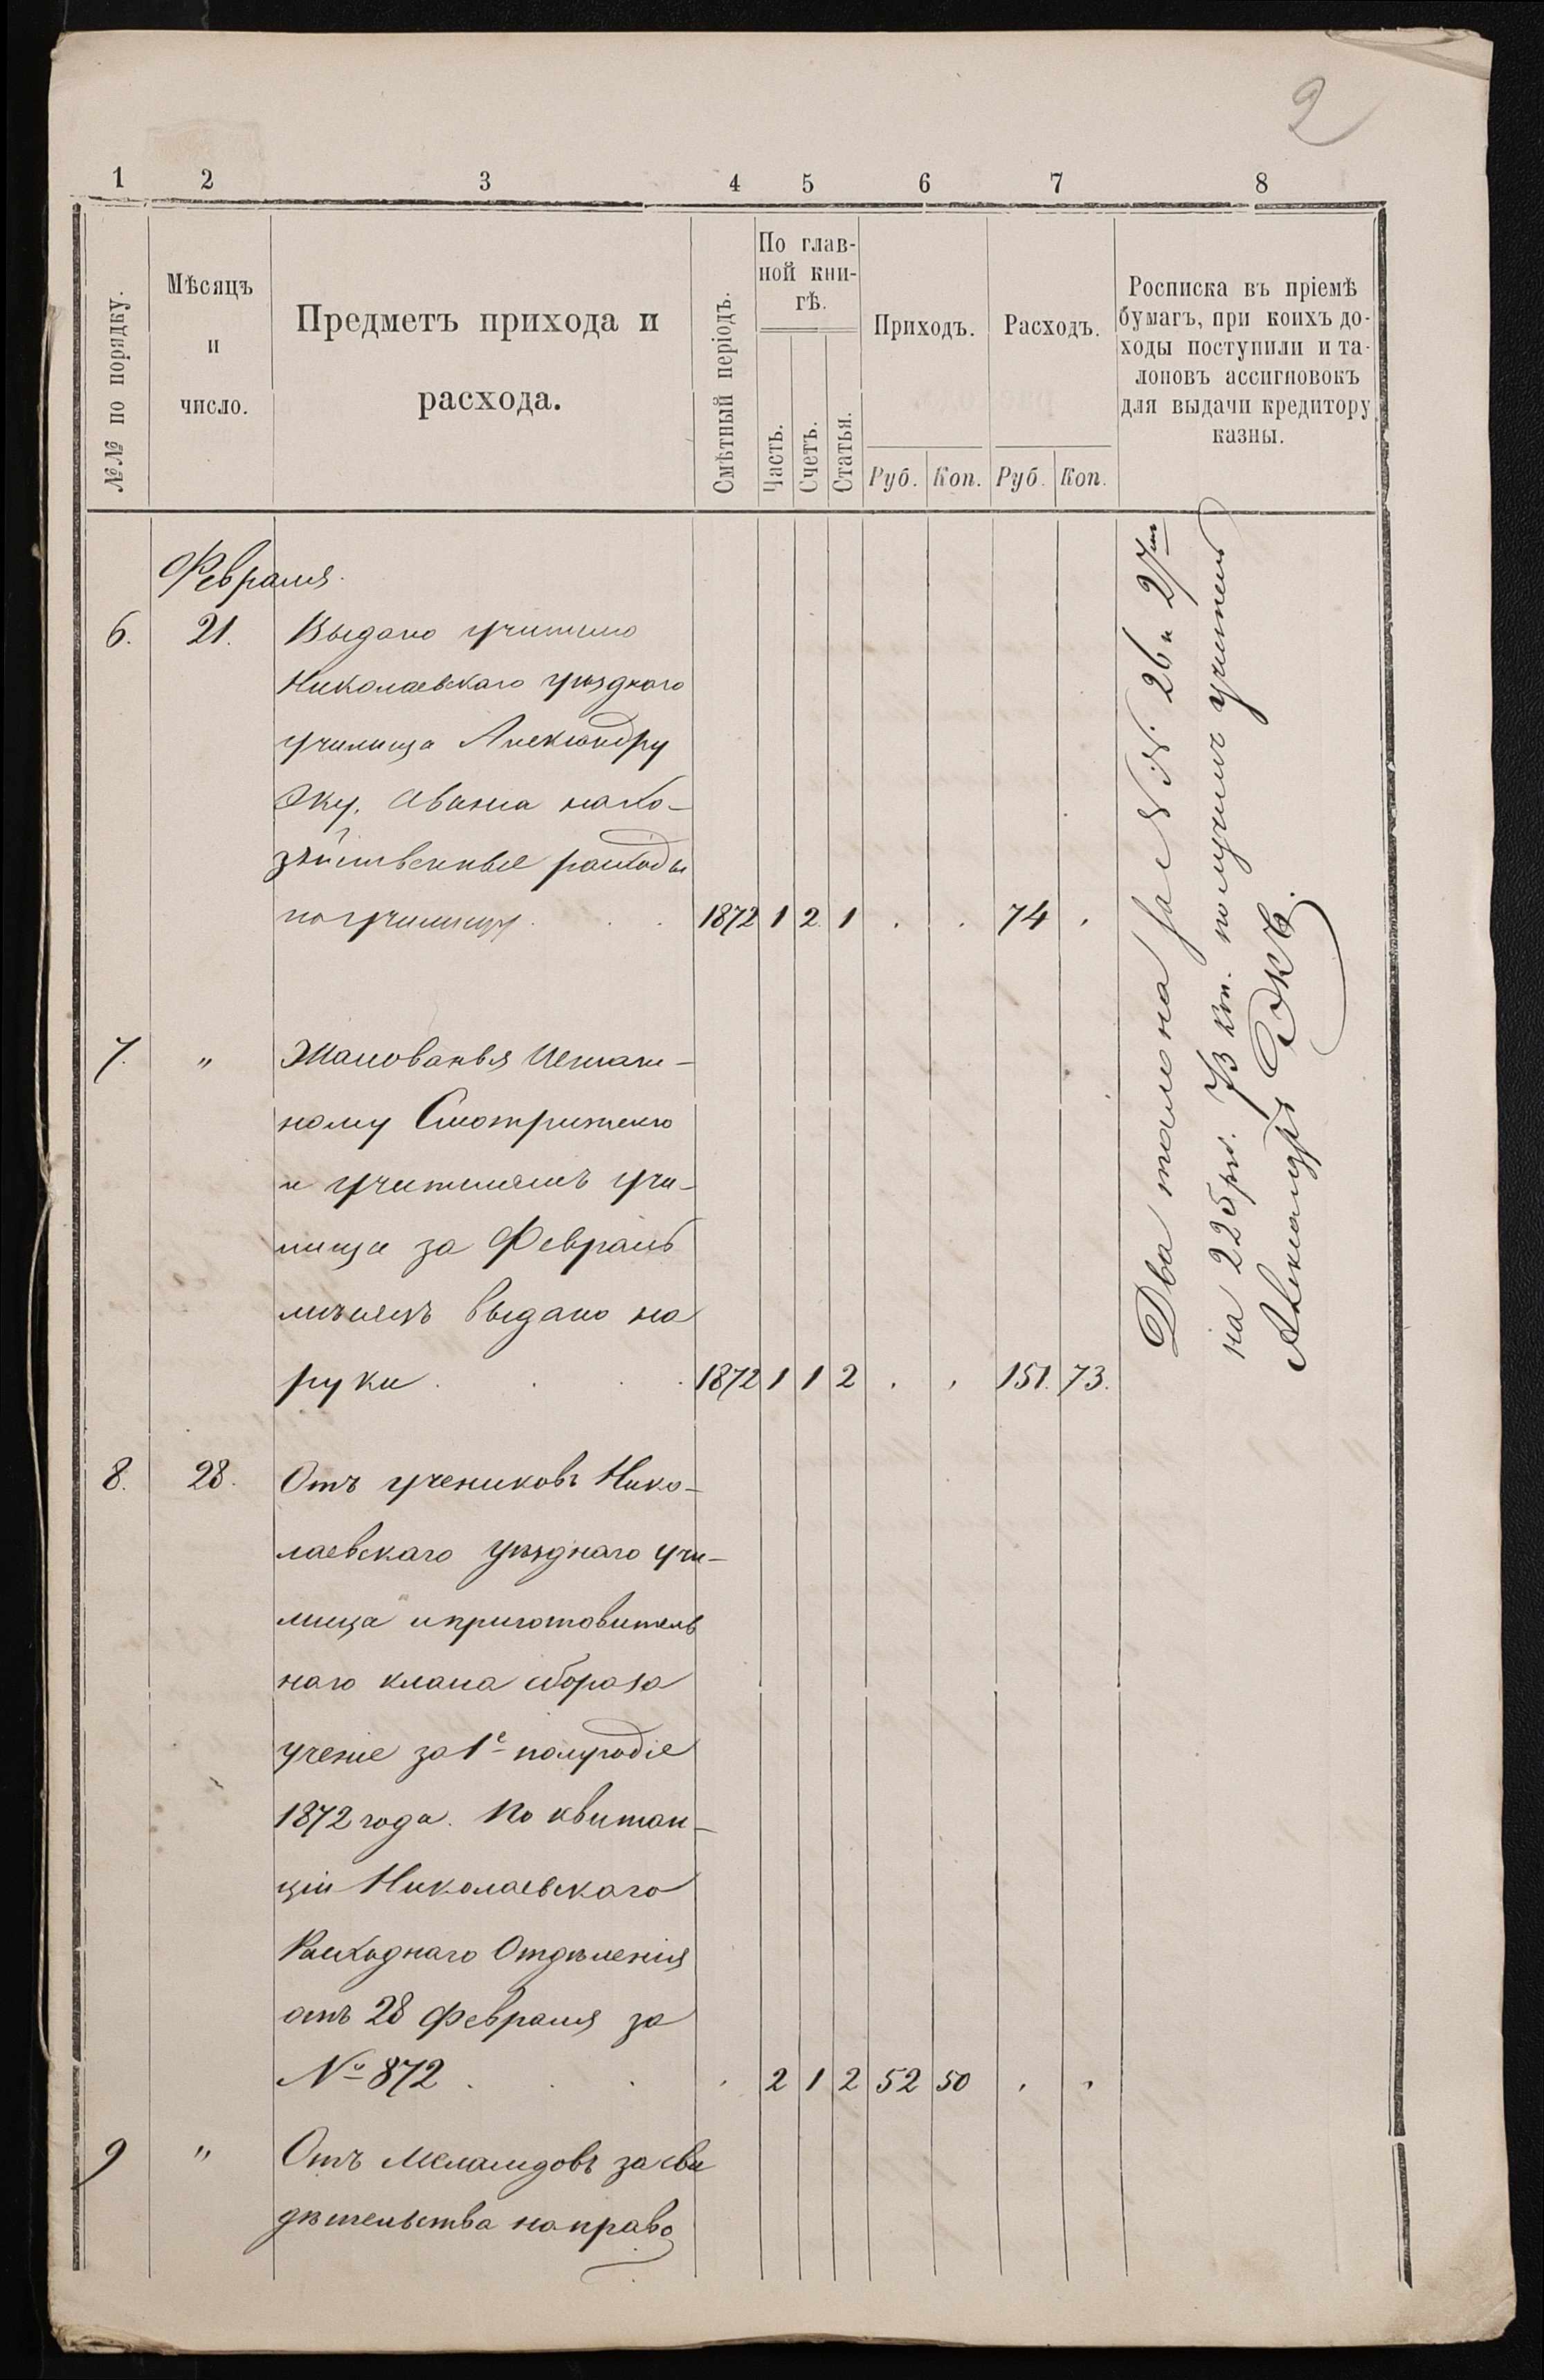 2
1 2 3 4 5 6 7 8
№№ по порядку.
Мѣсяцъ
и
число.
Предметъ прихода и
расхода.
Смѣтный періодъ.
По глав-
ной кни-
гѣ.
Часть.
Счетъ.
Статья.
Приходъ.
Руб. Коп.
Расходъ.
Руб. Коп.
Росписка въ пріемѣ
бумагъ, при коихъ до-
ходы поступили и та-
лоновъ ассигновокъ
для выдачи кредитору
казны.
Февраля.
6. 21. Выдано учителю
Николаевскаго уѣзднаго
училища Александру
Экку, Аванса на хо-
зяйственные расходы
по училищу . . . 1872 1 2 1 . . 74 .
7. " Жалованья Штат-
ному Смотрителю
и учителямъ учи-
лища за Февраль
мѣсяцъ выдано на
руки . . . 1872 1 1 2 . . 151. 73.
Два талона за №№ 26 и 27мъ
на 225 руб. 73 коп. получилъ учитель
Александръ Эккъ.
8. 28. Отъ учениковъ Нико-
лаевскаго уѣзднаго учи-
лища и приготовитель
наго класса сбора за
ученіе за 1е полугодіе
1872 года. По квитан-
ціи Николаевскаго
Расходнаго Отдѣленія
отъ 28 февраля за
№ 872 . . . . 2 1 2 52 50 . .
9 " Отъ Меламдовъ за сви
дѣтельства на право